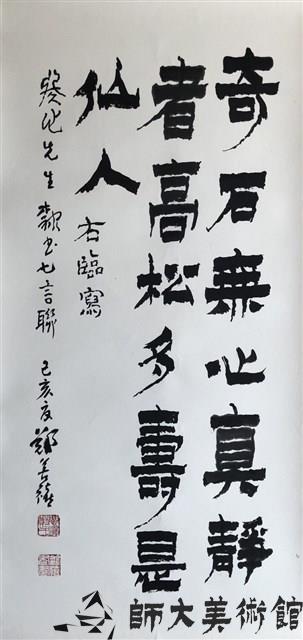 奇石無心真靜
者高松多壽是
仙人 右臨寫
癸 先生隸書七言聯 己亥夏 鄭善禧
師大美術館